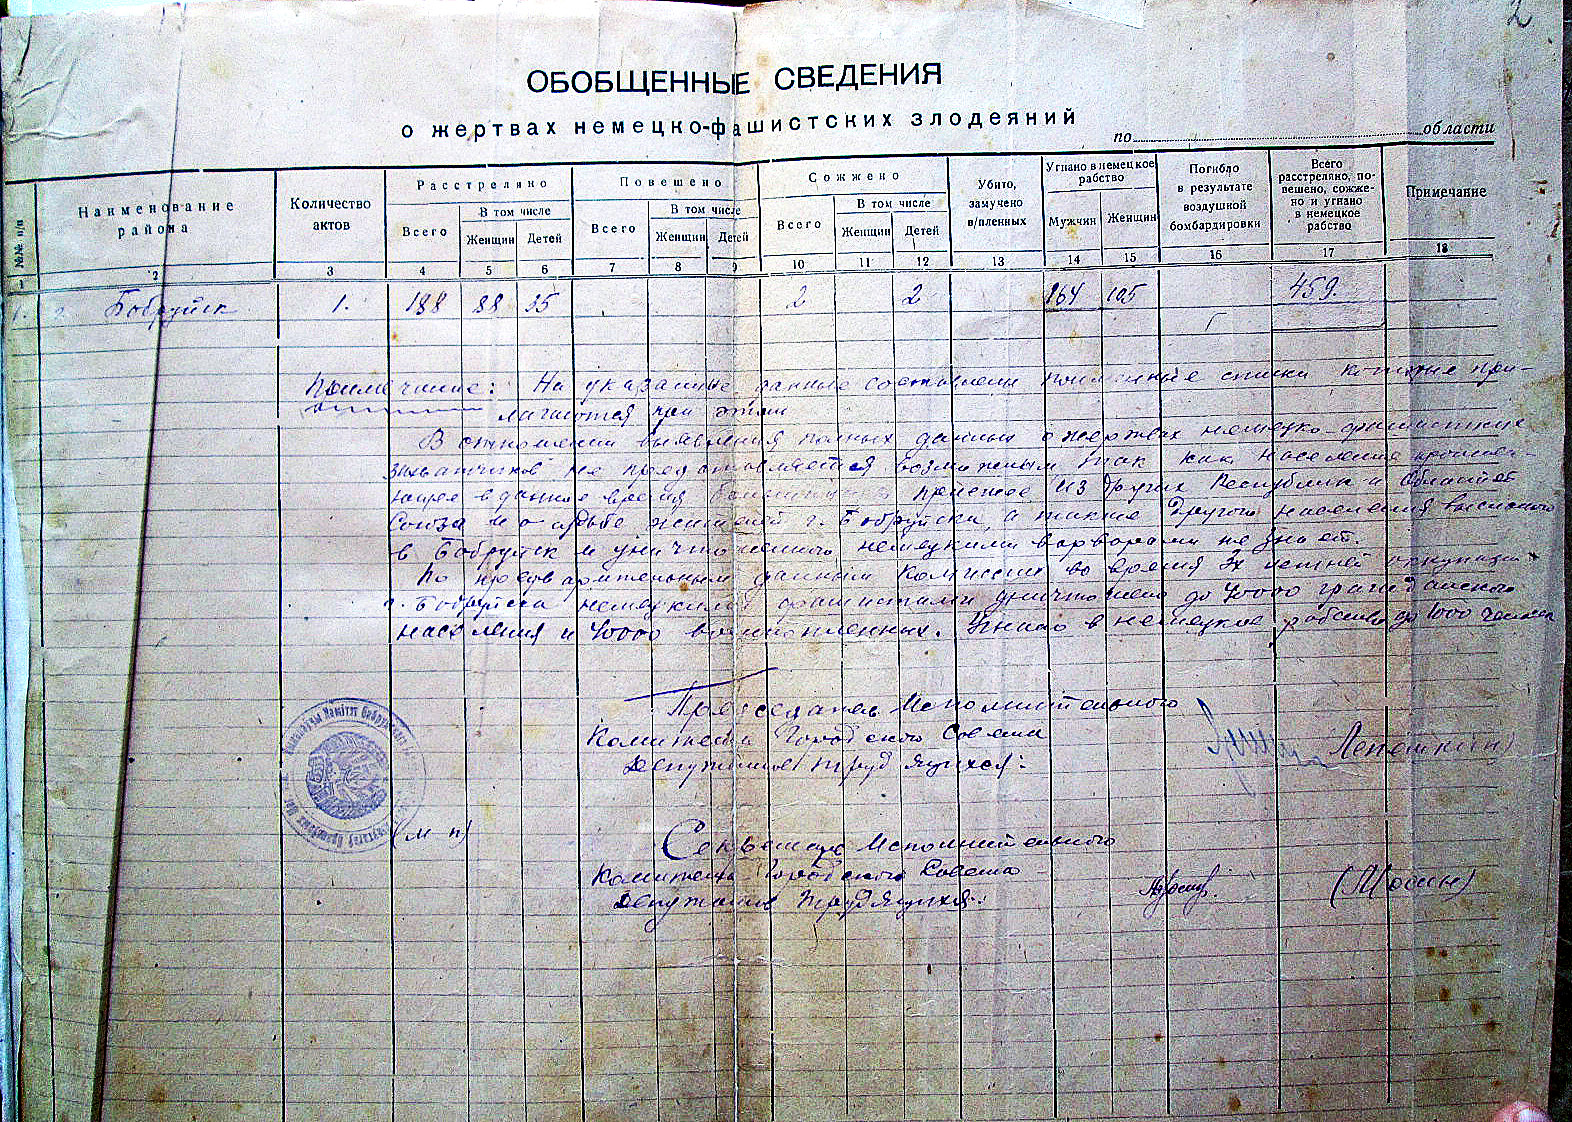 2
ОБОБЩЕННЫЕ СВЕДЕНИЯ
о жертвах немецко-фашистских злодеяний
по области
№№ п/п
Наименование района
Количество актов
Расстреляно
Всего
В том числе
Женщин
Детей
Повешено
Всего
В том числе
Женщин
Детей
Сожжено
Всего
В том числе
Женщин
Детей
Убито, замучено в/пленных
Угнано в немецкое рабство
Мужчин
Женщин
Погибло в результате воздушной бомбардировки
Всего расстреляно, повешено, сожжено и угнано в немецкое рабство
Примечание
1 2 3 4 5 6 7 8 9 10 11 12 13 14 15 16 17 18
1. г. Бобруйск 1. 188 88 35 2 2 164 105 459.
Примечание: На указанные данные составлены поименные списки которые при-
лагаются при этом
В отношении выявления полных данных о жертвах немецко-фашистских
захватчиков не представляется возможным так как население прожив-
ающее в данное время приезжее из других Республик и Областей
Союза и о судьбе жителей г. Бобруйска, а также другого населения
в Бобруйск и уничтоженного немецкими варварами не знает.
По предварительным данным Комиссии во время 3х летней оккупации
г. Бобруйска немецкими фашистами уничтожено до 40000 гражданского
населения и 40000 военнопленных. Угнано в немецкое рабство до 1000 человек
Председатель Исполнительного
Комитета Городского Совета
Депутатов трудящихся:
Лепешкин)
(м п)
Секретарь Исполнительного
Комитета Городского Совета
Депутатов трудящихся: